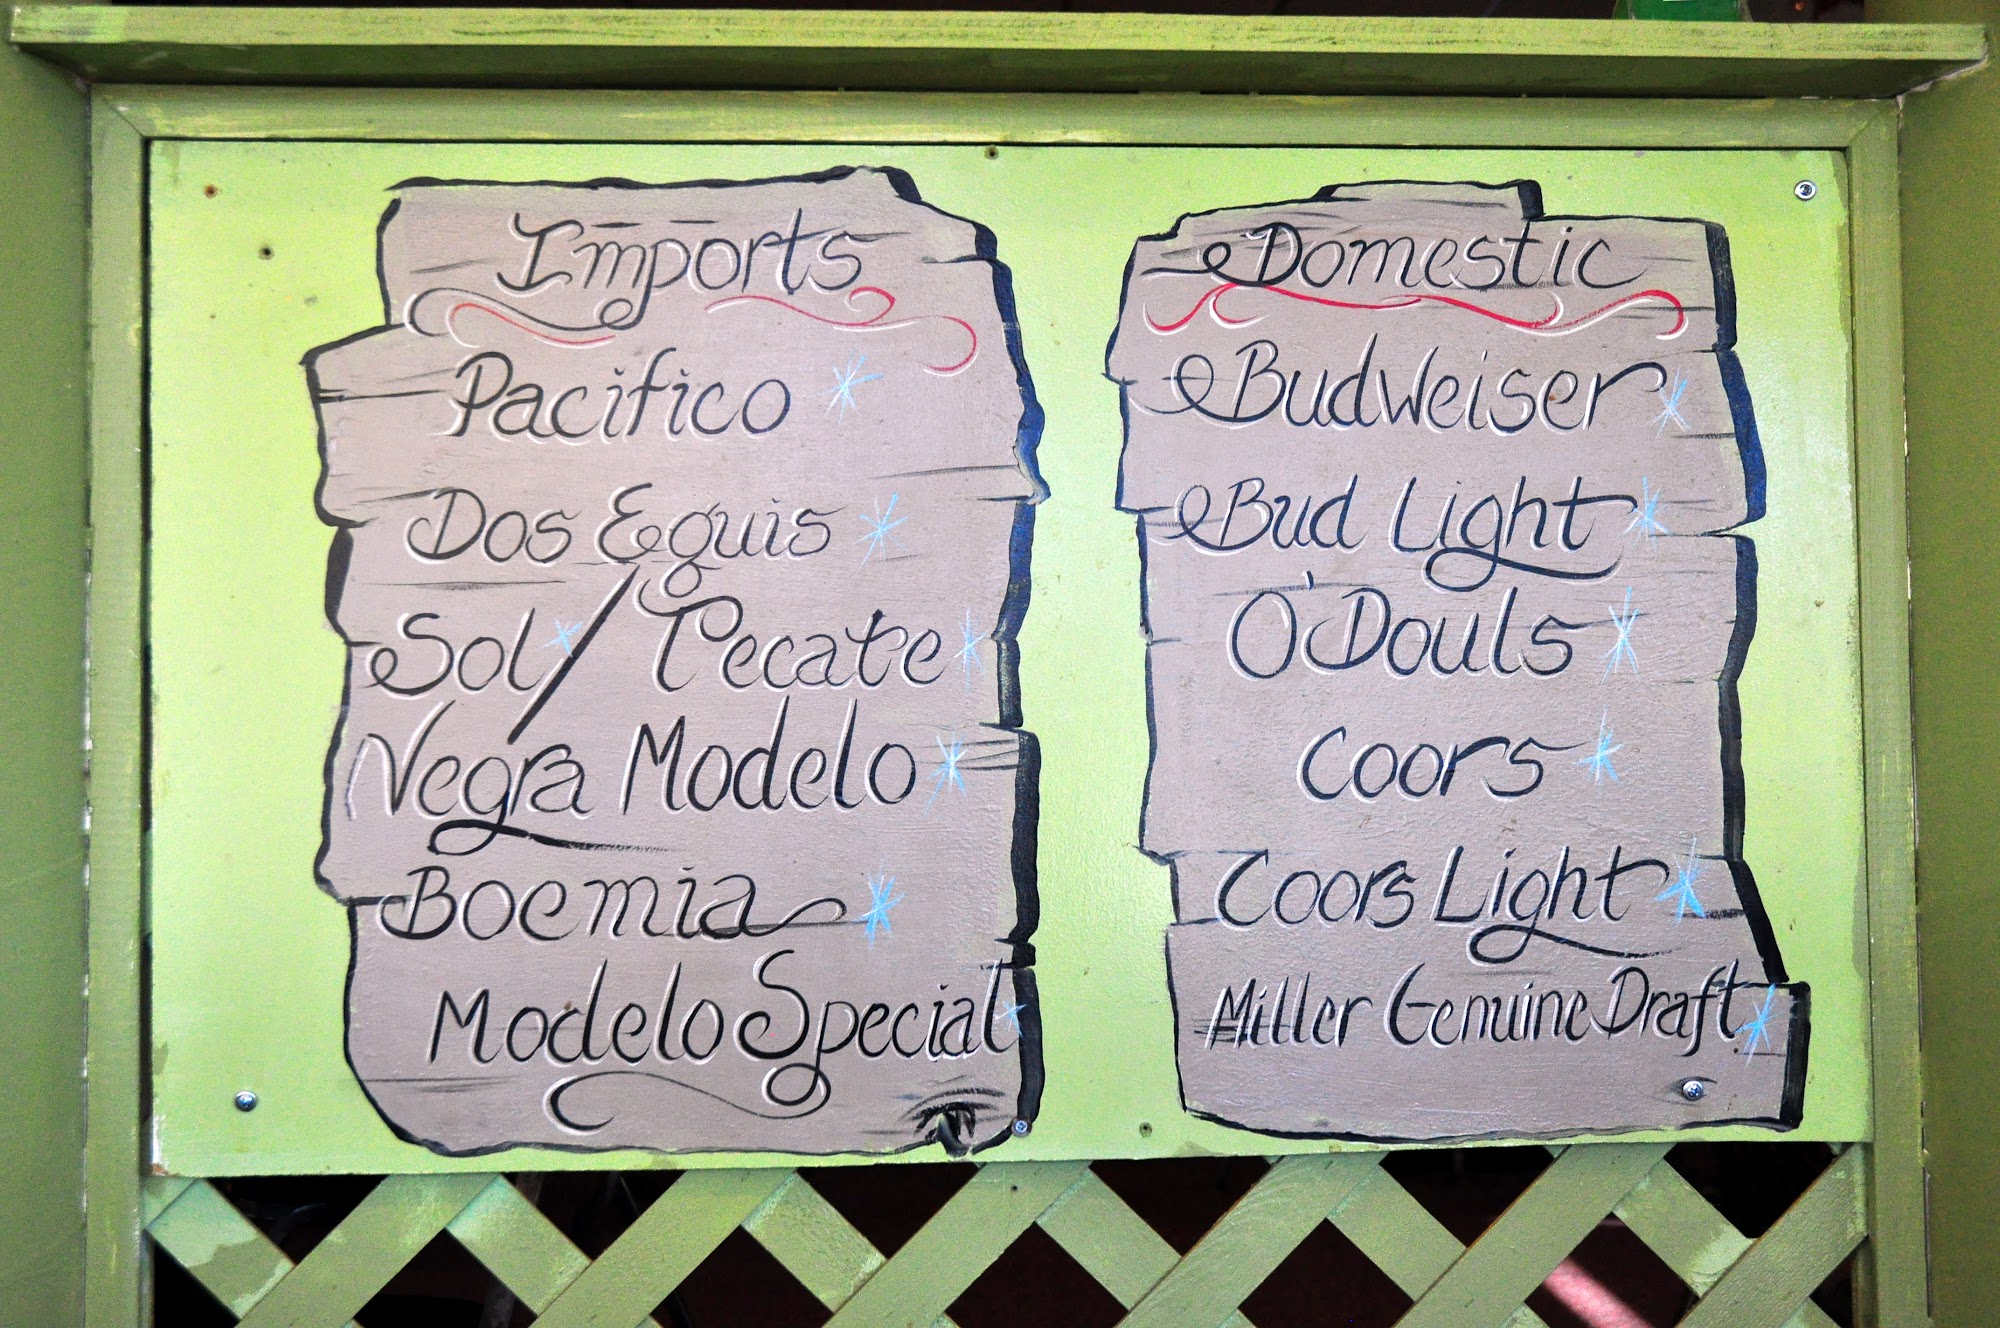 Imports
Pacifico
Dos Equis
Sol/Tecate
Negra Modelo
Boemia
Modelo Special
Domestic
Budweiser
Bud Light
O'Douls
Coors
Coors Light
Miller Genuine Draft